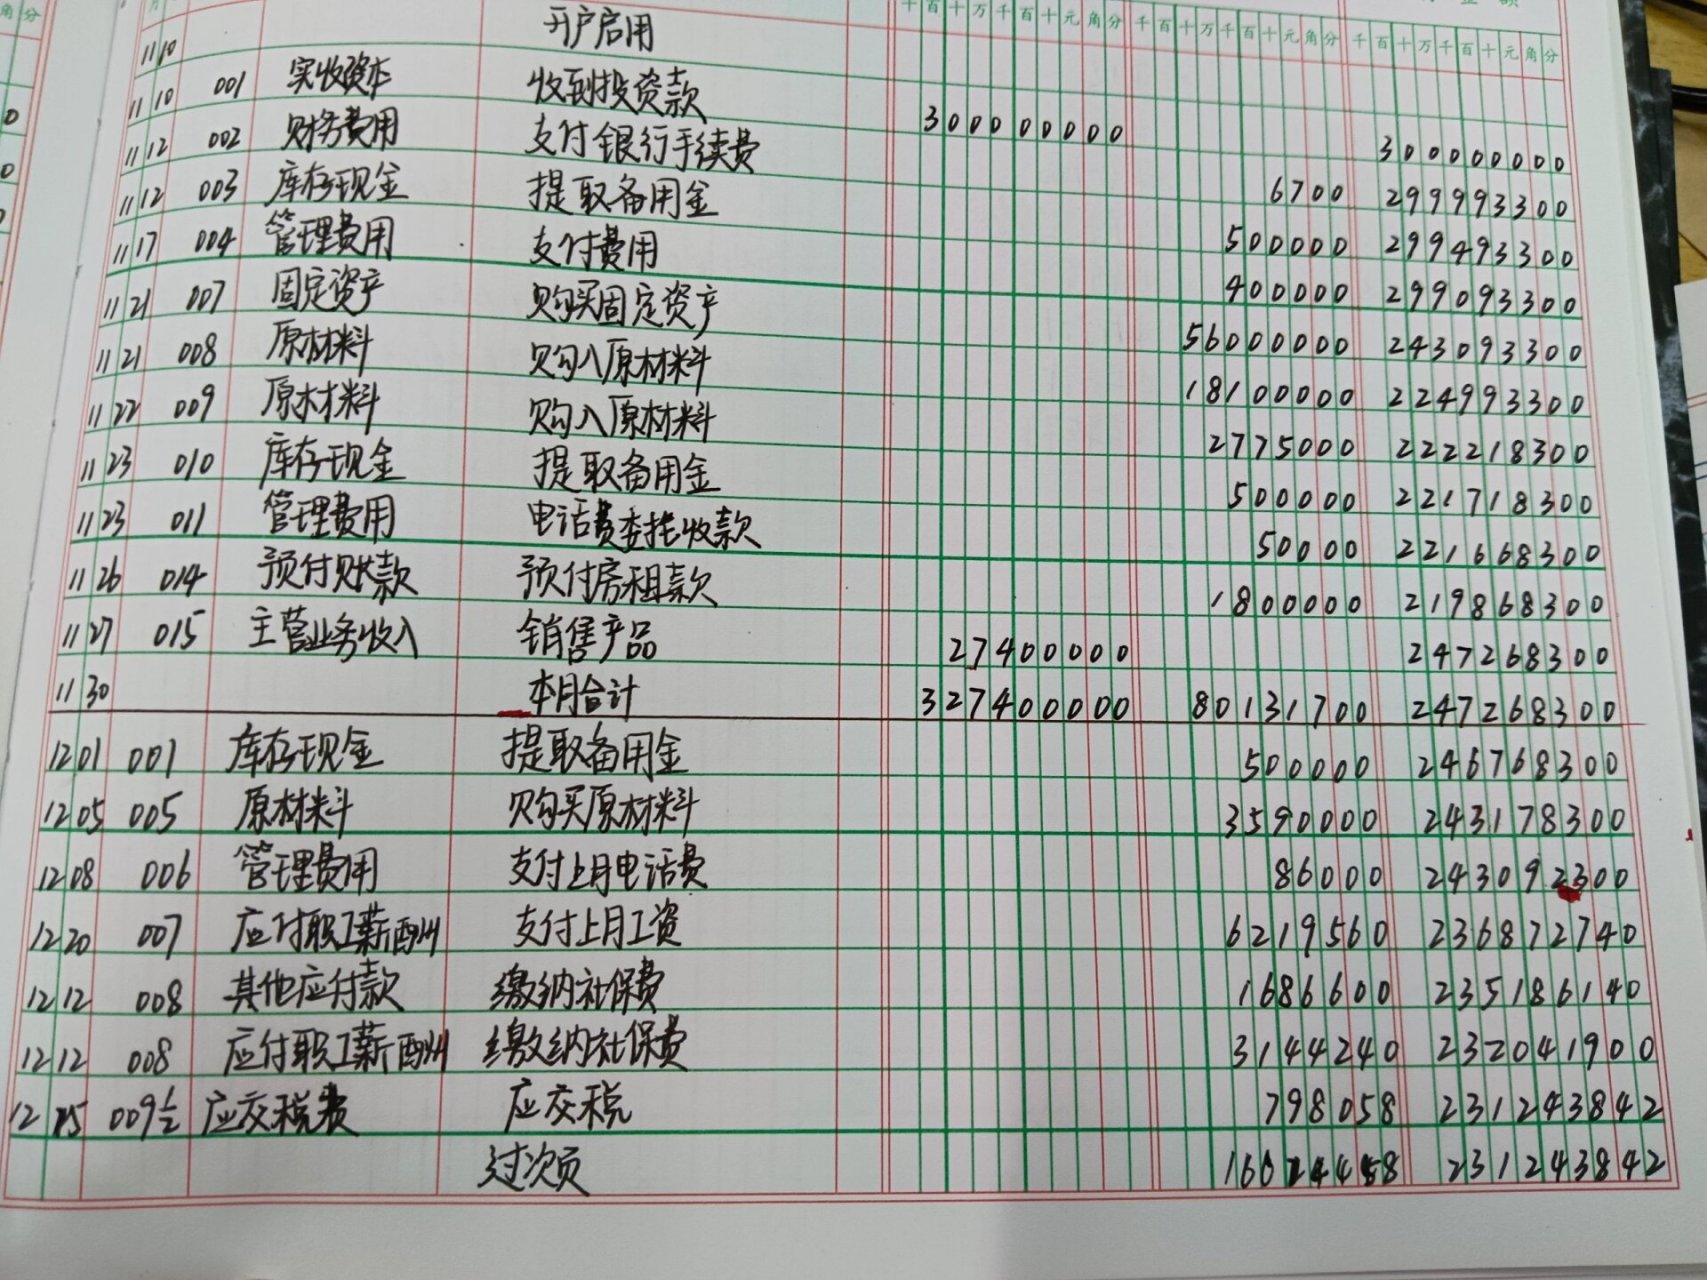 角 分
月
千 百 十 万 千 百 十 元 角 分 千 百 十 万 千 百 十 元 角 分 千 百 十 万 千 百 十 元 角 分
11 10 开户启用
11 10 001 实收资本 收到投资款 300000000 300000000
11 12 002 财务费用 支付银行手续费 6700 299993300
11 12 003 库存现金 提取备用金 500000 299493300
11 17 004 管理费用 支付费用 400000 299093300
11 21 007 固定资产 购买固定资产 56000000 243093300
11 21 008 原材料 购入原材料 18100000 224993300
11 22 009 原材料 购入原材料 2775000 222218300
11 23 010 库存现金 提取备用金 500000 221718300
11 23 011 管理费用 电话费委托收款 50000 221668300
11 26 014 预付账款 预付房租款 1800000 219868300
11 27 015 主营业务收入 销售产品 27400000 247268300
11 30 本月合计 327400000 80131700 247268300
12 01 001 库存现金 提取备用金 500000 246768300
12 05 005 原材料 购买原材料 3590000 243178300
12 08 006 管理费用 支付上月电话费 86000 243092300
12 20 007 应付职工薪酬 支付上月工资 6219560 236872740
12 12 008 其他应付款 缴纳社保费 1686600 235186140
12 12 008 应付职工薪酬 缴纳社保费 3144240 232041900
12 15 009½ 应交税费 应交税 798058 231243842
过次页 16024458 231243842